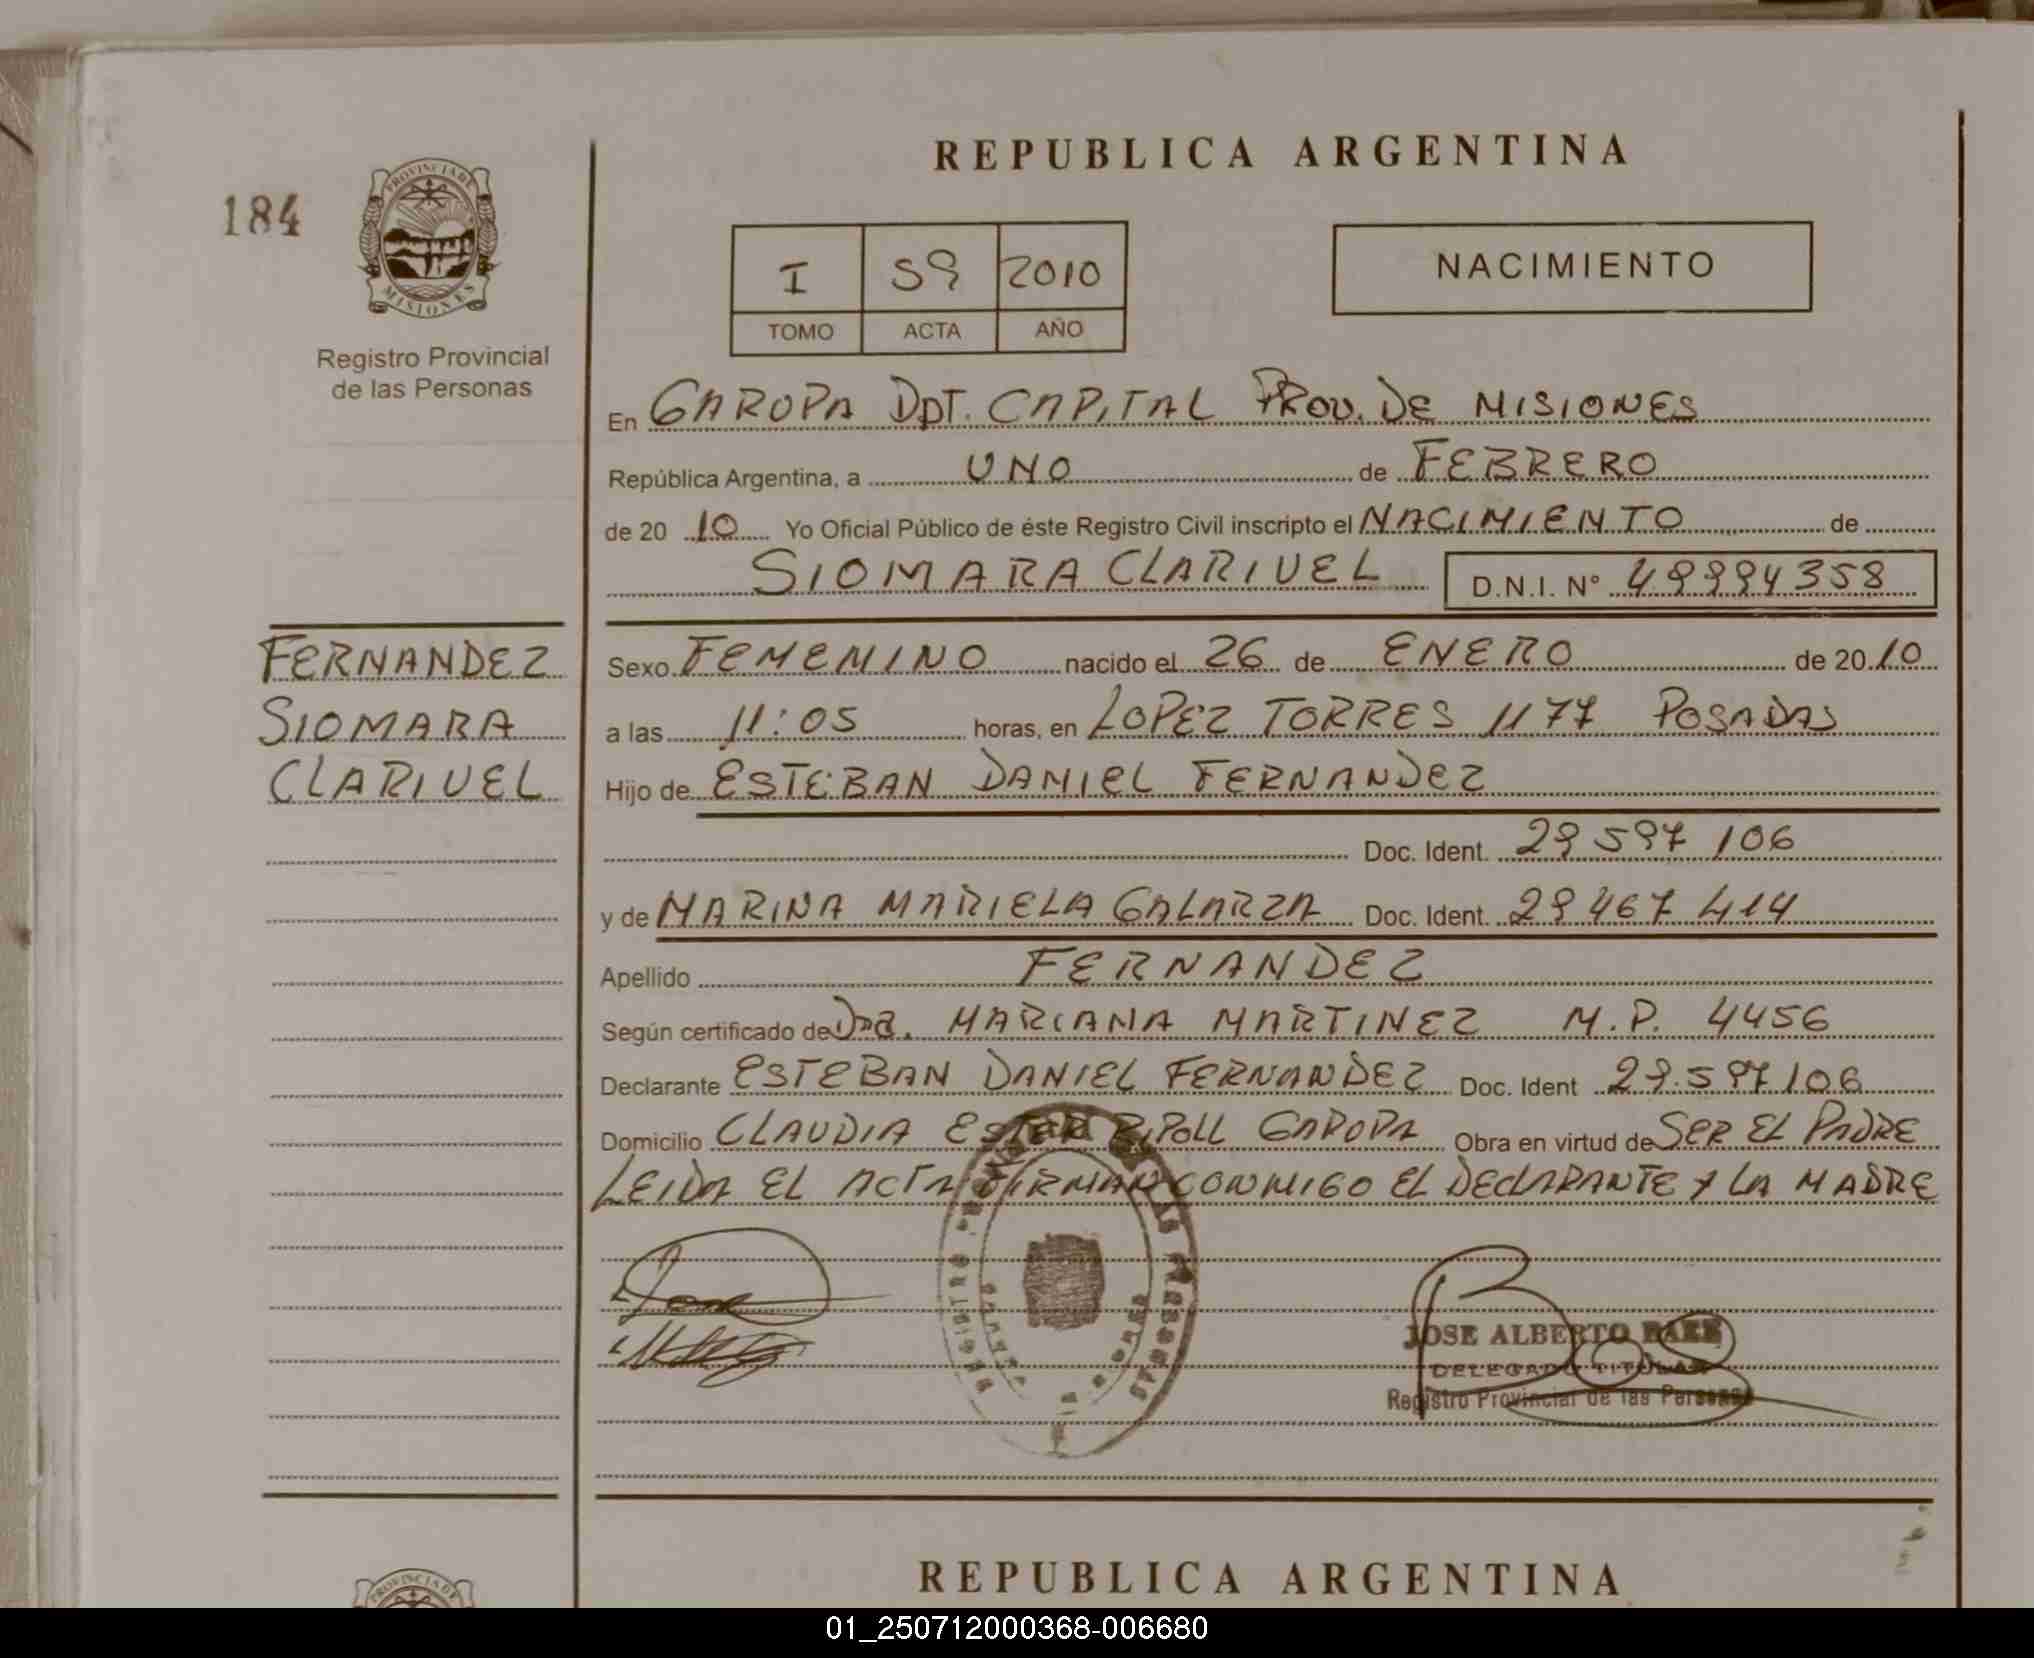 REPUBLICA ARGENTINA
184
PROVINCIA DE
MISIONES
Registro Provincial
de las Personas
I 59 2010
TOMO ACTA AÑO
NACIMIENTO
En GARUPA DPT. CAPITAL PROV. DE MISIONES
República Argentina, a UNO de FEBRERO
de 20 10 Yo Oficial Público de éste Registro Civil inscripto el NACIMIENTO de
SIOMARA CLARIVEL D.N.I. N° 49994358
FERNANDEZ
SIOMARA
CLARIVEL
Sexo FEMENINO nacido el 26 de ENERO de 20 10
a las 11:05 horas, en LOPEZ TORRES 1177 POSADAS
Hijo de ESTEBAN DANIEL FERNANDEZ
Doc. Ident. 29 597 106
y de MARINA MARIELA GALARZA Doc. Ident. 29 467 414
Apellido FERNANDEZ
Según certificado de Dra. MARIANA MARTINEZ M.P. 4456
Declarante ESTEBAN DANIEL FERNANDEZ Doc. Ident 29.597106
Domicilio CLAUDIA ESTER RIPOLL GARUPA Obra en virtud de SER EL PADRE
LEIDA EL ACTA FIRMAN CONMIGO EL DECLARANTE Y LA MADRE
JOSE ALBERTO
DELEGADO TITULAR
Registro Provincial de las Personas
REPUBLICA ARGENTINA
PROVINCIA DE
01_250712000368-006680